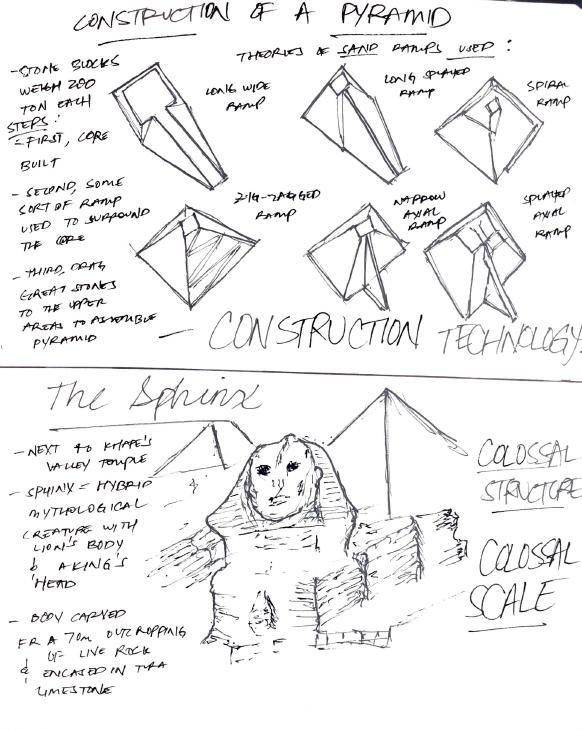 CONSTRUCTION OF A PYRAMID
- STONE BLOCKS
WEIGH 200
TON EACH
STEPS:
- FIRST, CORE
BUILT
- SECOND, SOME
SORT OF RAMP
USED TO SURROUND
THE CORE
- THIRD, DRAG
GREAT STONES
TO THE UPPER
AREAS TO ASSEMBLE
PYRAMID
THEORIES OF SAND RAMPS USED:
LONG WIDE
RAMP
LONG SPLAYED
RAMP
SPIRAL
RAMP
ZIG-ZAGGED
RAMP
NARROW
AXIAL
RAMP
SPLAYED
AXIAL
RAMP
— CONSTRUCTION TECHNOLOGY
The Sphinx
- NEXT TO KHAFE'S
VALLEY TEMPLE
- SPHINX = HYBRID
MYTHOLOGICAL
CREATURE WITH
LION'S BODY
& A KING'S
HEAD
- BODY CARVED
FR A 70m OUTCROPPING
OF LIVE ROCK
& ENCASED IN TURA
LIMESTONE
COLOSSAL
STRUCTURE
COLOSSAL
SCALE